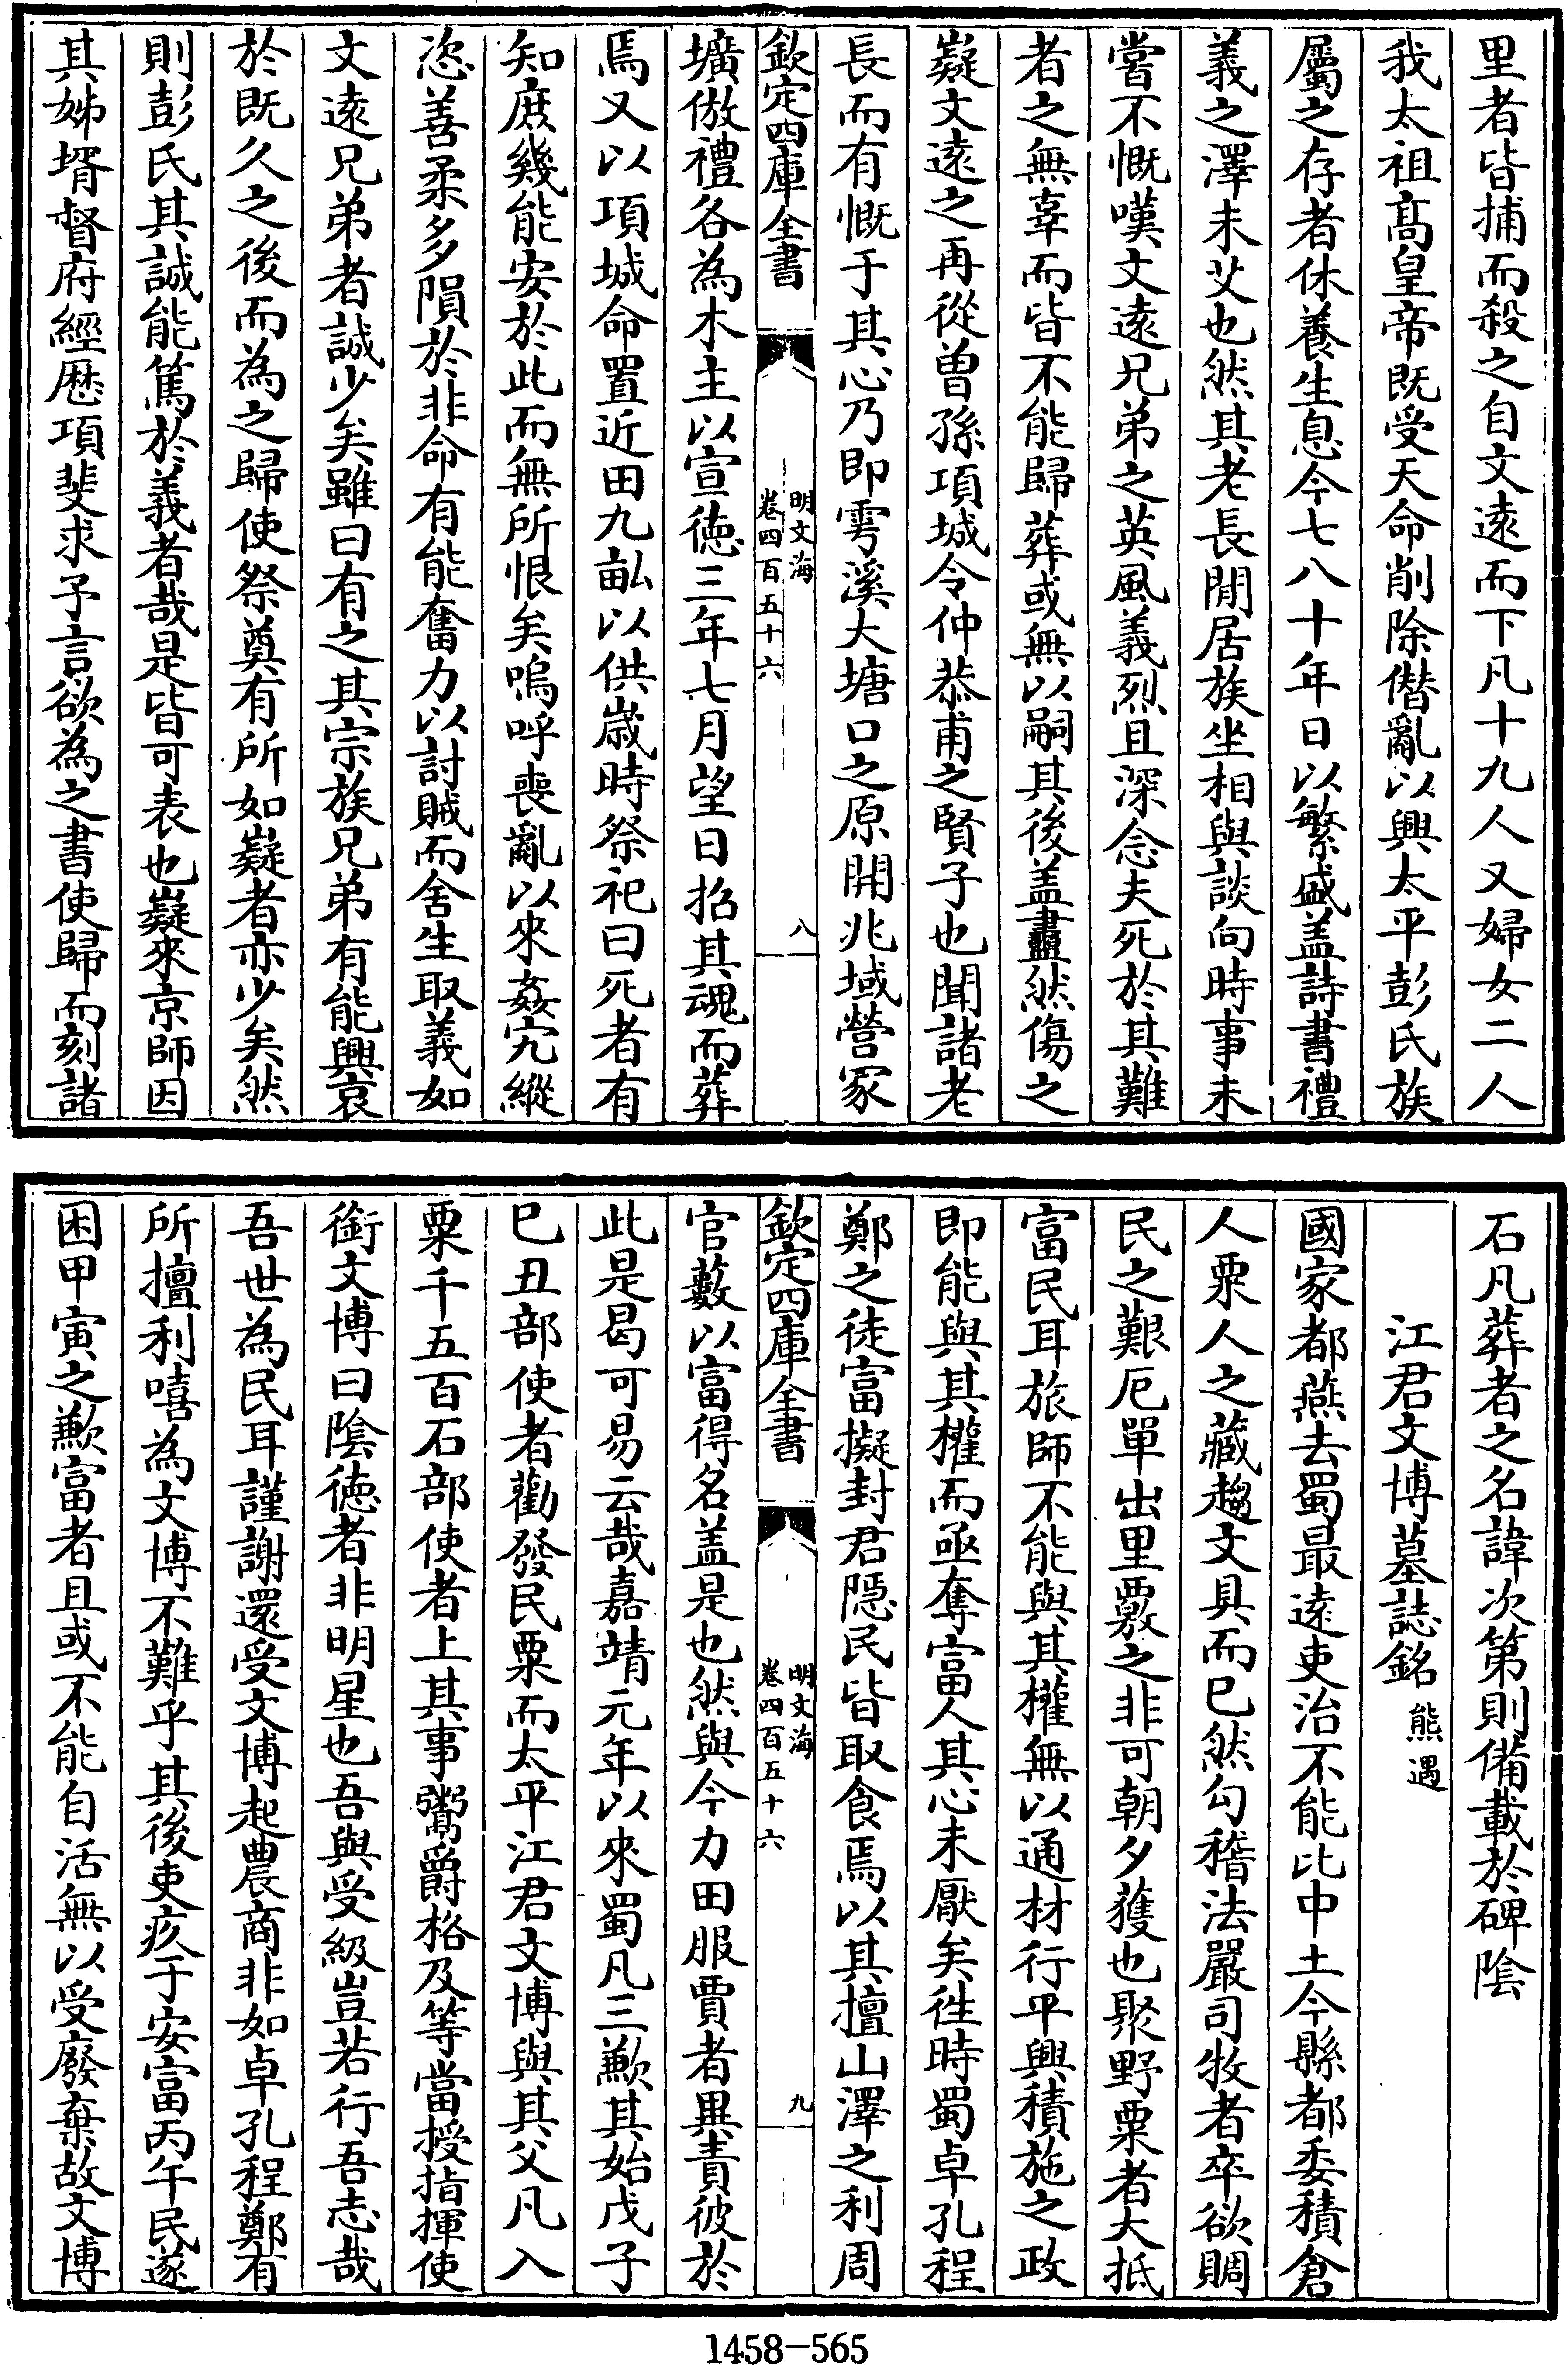 里者皆捕而殺之自文遠而下凡十九人又婦女二人
我太祖髙皇帝既受天命削除僣亂以興太平彭氏族
屬之存者休養生息今七八十年日以繁盛盖詩書禮
義之澤未艾也然其老長閒居族坐相與談向時事未
嘗不慨嘆文遠兄弟之英風義烈且深念夫死於其難
者之無辜而皆不能歸葬或無以嗣其後盖盡然傷之
嶷文遠之再從曽孫項城令仲恭甫之賢子也聞諸老
長而有慨于其心乃即雩溪大塘口之原開兆域營冢
欽定四庫全書
明文海
卷四百五十六
八
壙倣禮各為木主以宣徳三年七月望日招其魂而葬
焉又以項城命置近田九畝以供嵗時祭祀曰死者有
知庶幾能安於此而無所恨矣嗚呼喪亂以來姦宄縱
恣善柔多隕於非命有能奮力以討賊而舍生取義如
文遠兄弟者誠少矣雖曰有之其宗族兄弟有能興哀
於既久之後而為之歸使祭奠有所如嶷者亦少矣然
則彭氏其誠能篤於義者哉是皆可表也嶷來京師因
其姊壻督府經厯項斐求予言欲為之書使歸而刻諸
石凡葬者之名諱次第則備載於碑隂
江君文博墓誌銘 熊過
國家都燕去蜀最遠吏治不能比中土今縣都委積倉
人粟人之藏趨文具而已然勾稽法嚴司牧者卒欲賙
民之艱厄單出里覈之非可朝夕獲也聚野粟者大抵
富民耳旅師不能與其權無以通材行平興積施之政
即能與其權而亟奪富人其心未厭矣徃時蜀卓孔程
鄭之徒富擬封君隠民皆取食焉以其擅山澤之利周
欽定四庫全書
明文海
卷四百五十六
九
官藪以富得名盖是也然與今力田服賈者異責彼於
此是曷可易云哉嘉靖元年以來蜀凡三歉其始戊子
已丑部使者勸發民粟而太平江君文博與其父凡入
粟千五百石部使者上其事鬻爵格及等當授指揮使
銜文博曰隂徳者非明星也吾與受級豈若行吾志哉
吾世為民耳謹謝還受文博起農商非如卓孔程鄭有
所擅利嘻為文博不難乎其後吏疚于安富丙午民遂
困甲寅之歉富者且或不能自活無以受廢棄故文博
1458-565